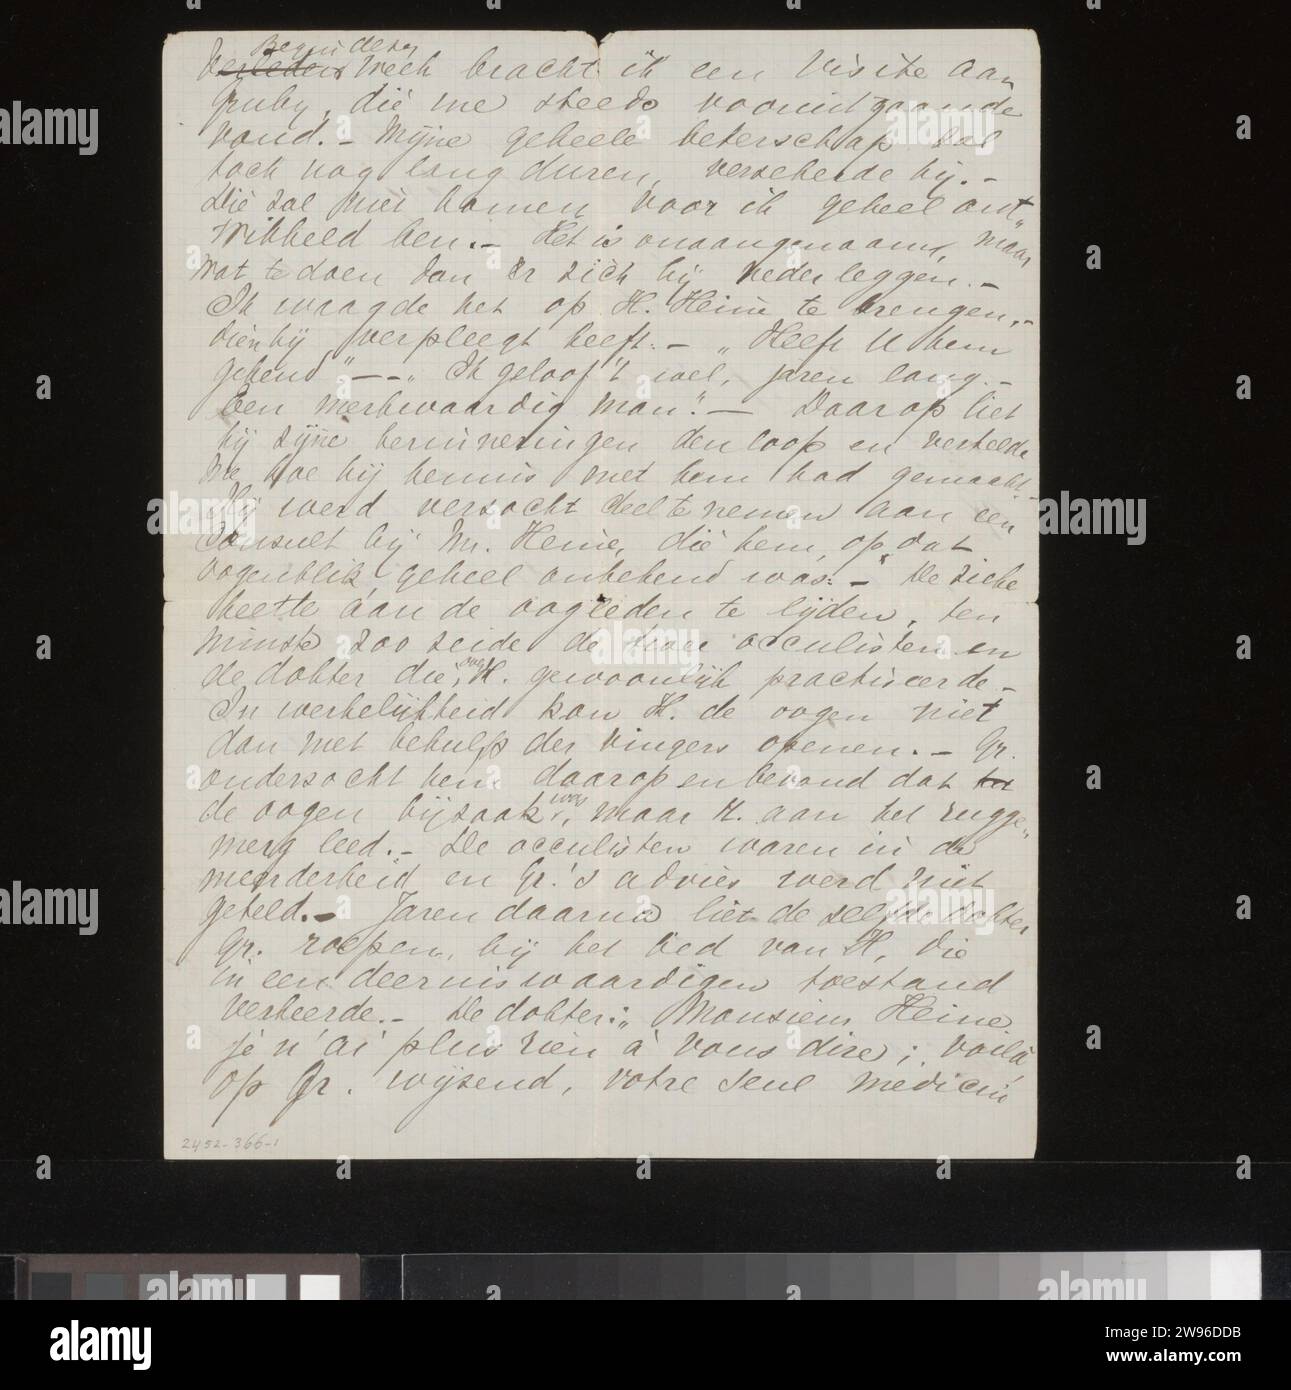 Begin dezer
Verleden Week bracht ik een Visite aan
Gruby, die me steeds vooruitgaande
vond. – Mijne geheele beterschap zal
toch nog lang duren, verzekerde hij. –
Die zal niet komen voor ik geheel ont„
wikkeld ben. – Het is onaangenaam, maar
wat te doen dan er zich bij neder leggen. –
Ik waagde het op H. Heine te brengen, –
dien hij verpleegt heeft. – „Heeft U hem
gekend" – – „Ik geloof 't wel, jaren lang. –
Een merkwaardig man". – Daarop liet
hij zijne herinneringen den loop en vertelde
me hoe hij kennis met hem had gemaakt. –
Hij werd verzocht deel te nemen aan een
Consult bij Mr. Heine, die hem, op dat
oogenblik geheel onbekend was. – De zieke
heette aan de oogleden te lijden, ten
minste zoo zeide de twee occulisten en
de dokter die, H. gewoonlijk practiseerde. –
In werkelijkheid kon H. de oogen niet
dan met behulp der vingers openen. – Gr.
onderzocht hem daarop en bevond dat
de oogen bijzaak was, maar H. aan het rugge„
merg leed. – De occulisten waren in de
meerderheid en Gr.'s advies werd niet
geteld. – Jaren daarna liet de zelfde dokter
Gr. roepen, bij het bed van H, die
in een deerniswaardigen toestand
verkeerde. – De dokter: „Monsieur Heine
je n'ai plus rien à vous dire; voilà
op Gr. wijzend, votre seul medicin
2452-366-1
alamy
Image ID: 2W96DDB
www.alamy.com